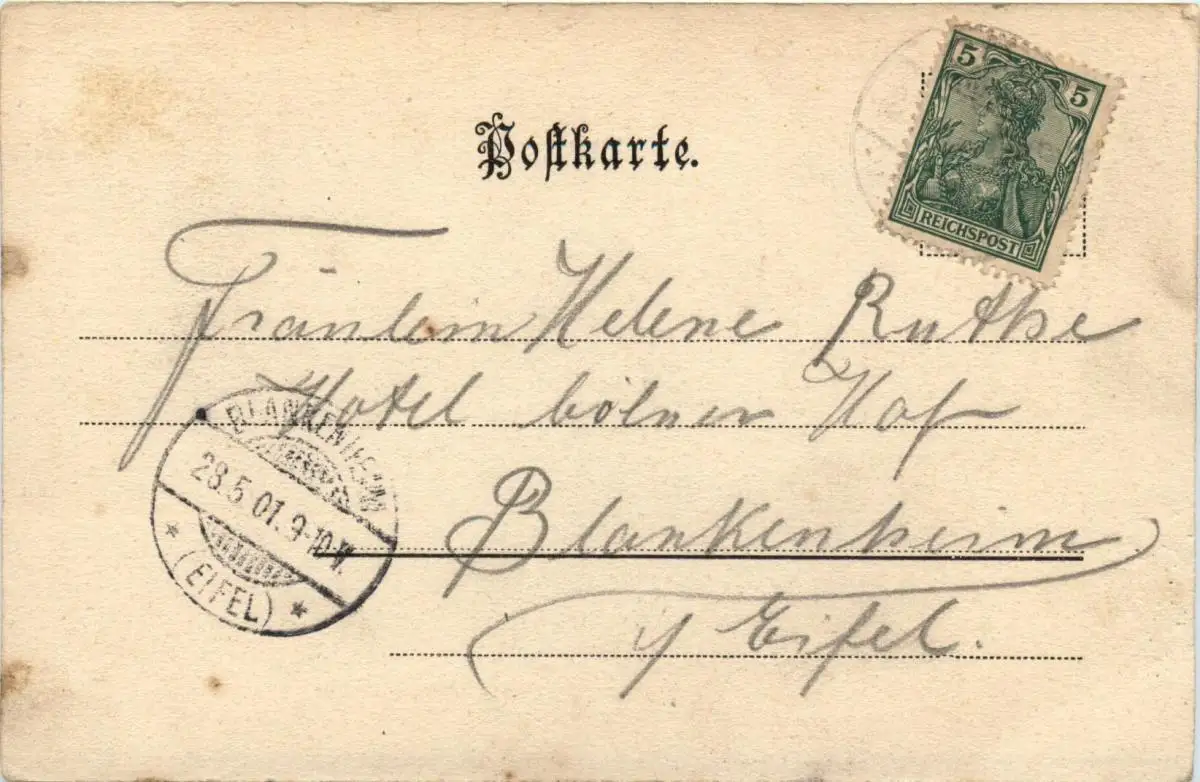 Postkarte.
5 5
REICHSPOST
Fräulein Helene
Hotel Kölner Hof
Blankenheim
i/ Eifel.
BLANKENHEIM
28.5.01.9-10.V.
* (EIFEL) *